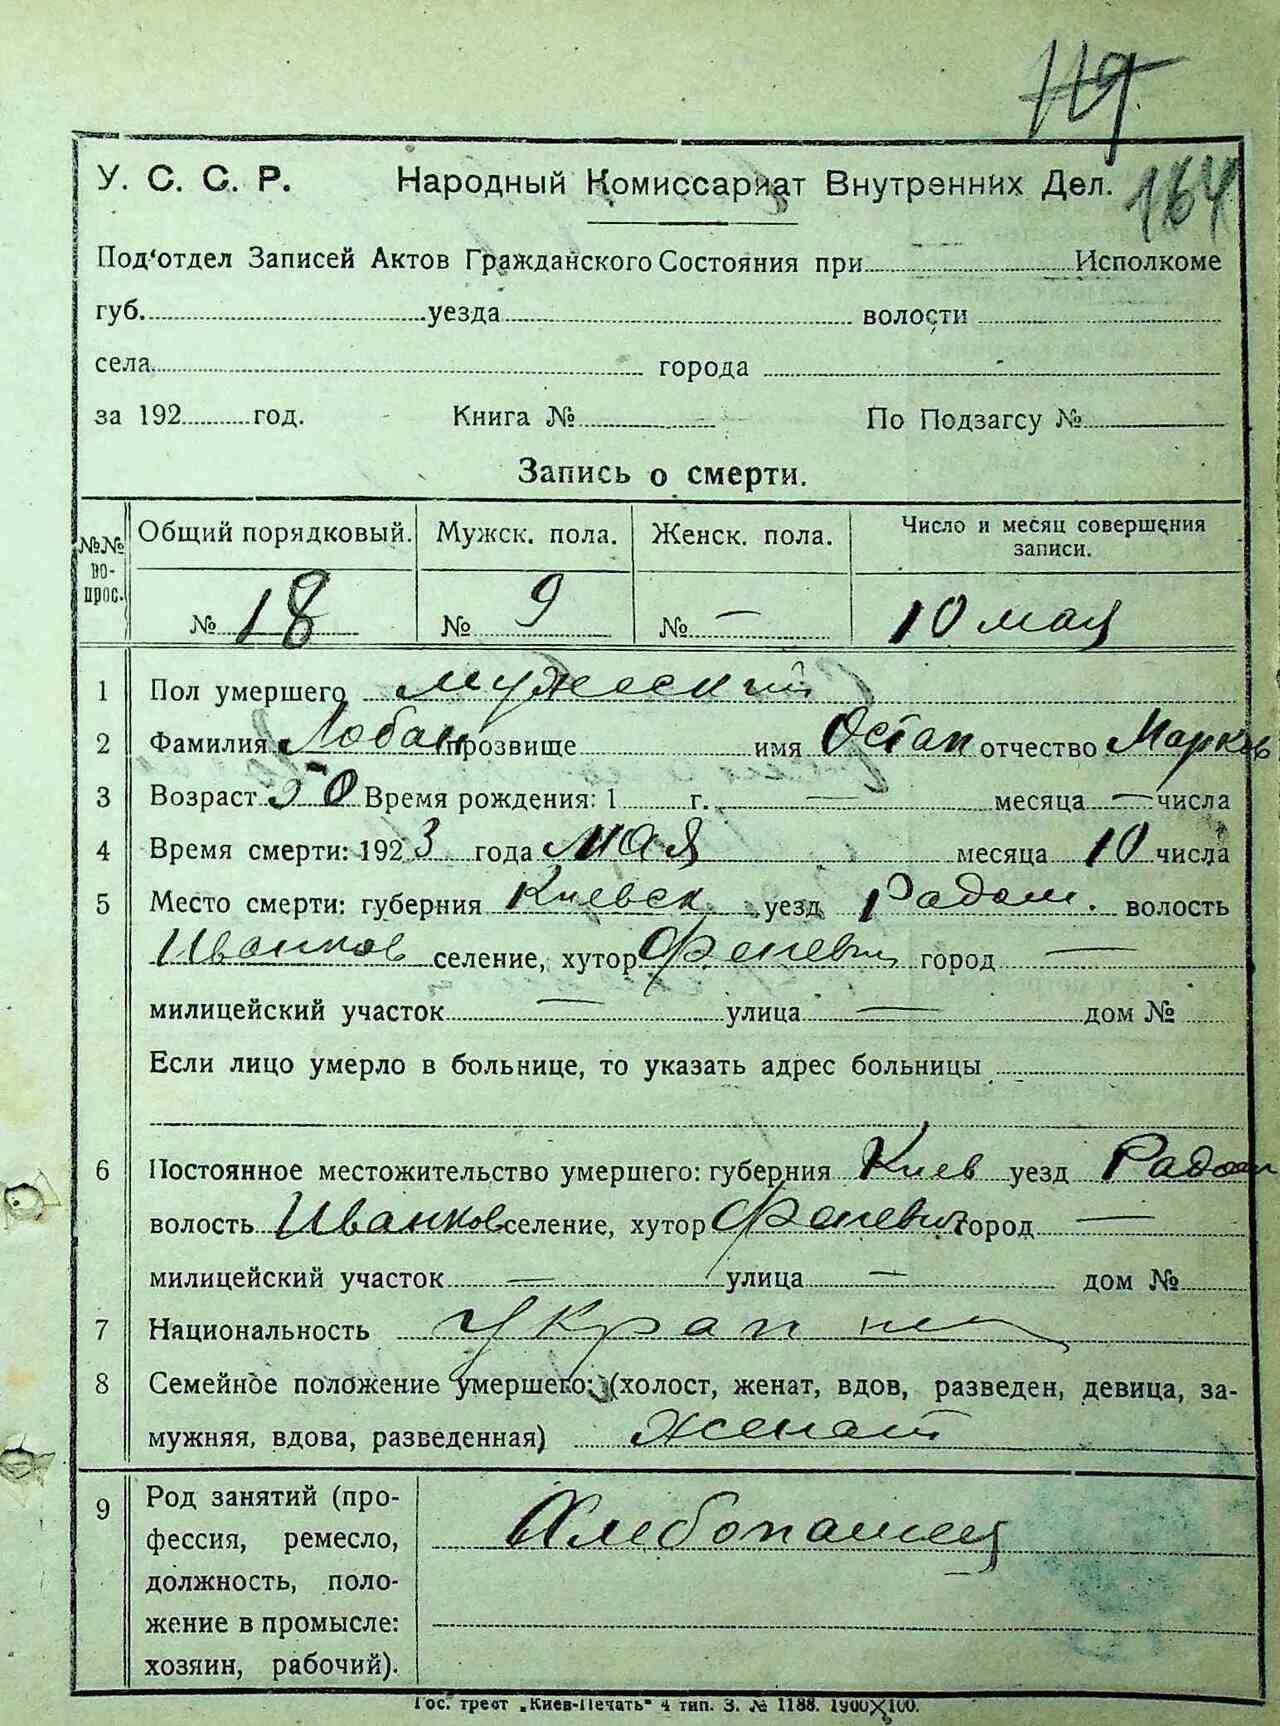 119
164
У. С. С. Р. Народный Комиссариат Внутренних Дел.
Под'отдел Записей Актов Гражданского Состояния при Исполкоме
губ. уезда волости
села города
за 192 год. Книга № По Подзагсу №
Запись о смерти.
№№ во- прос. Общий порядковый. Мужск. пола. Женск. пола. Число и месяц совершения записи.
№ 18 № 9 № — 10 мая
1 Пол умершего мужеский
2 Фамилия Лобан прозвище имя Остап отчество Марков
3 Возраст 50 Время рождения: 1 г. — месяца — числа
4 Время смерти: 1923 года мая месяца 10 числа
5 Место смерти: губерния Киевск уезд Радом. волость
Иванков селение, хутор Феневичи город —
милицейский участок — улица — дом №
Если лицо умерло в больнице, то указать адрес больницы
6 Постоянное местожительство умершего: губерния Киев уезд Радом
волость Иванков селение, хутор Феневич город —
милицейский участок — улица — дом №
7 Национальность Украинец
8 Семейное положение умершего: (холост, женат, вдов, разведен, девица, за-
мужняя, вдова, разведенная) женат
9 Род занятий (про-
фессия, ремесло, Хлебопашец
должность, поло-
жение в промысле:
хозяин, рабочий).
Гос. трест „Киев-Печать" 4 тип. З. № 1188. 1900×100.